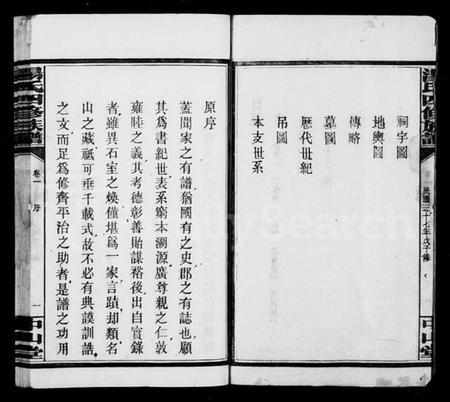 湯氏四修族譜
民國三十七年戊子修
中山堂
祠宇圖
地輿圖
傳略
墓圖
歷代世紀
吊圖
本支世系
原序
蓋聞家之有譜猶國有之史郡之有誌也顧
其為書紀世表系窮本溯源廣尊親之仁敦
雍睦之義其考德彰善貽謀裕後出自實錄
者雖異石室之煥僅堪為一家言蹟却類名
山之藏祗可垂千載式故不必有典謨訓誥
之文而足為修齊平治之助者是譜之功用
湯氏四修族譜
卷一
序
一
中山堂
FamilySearch